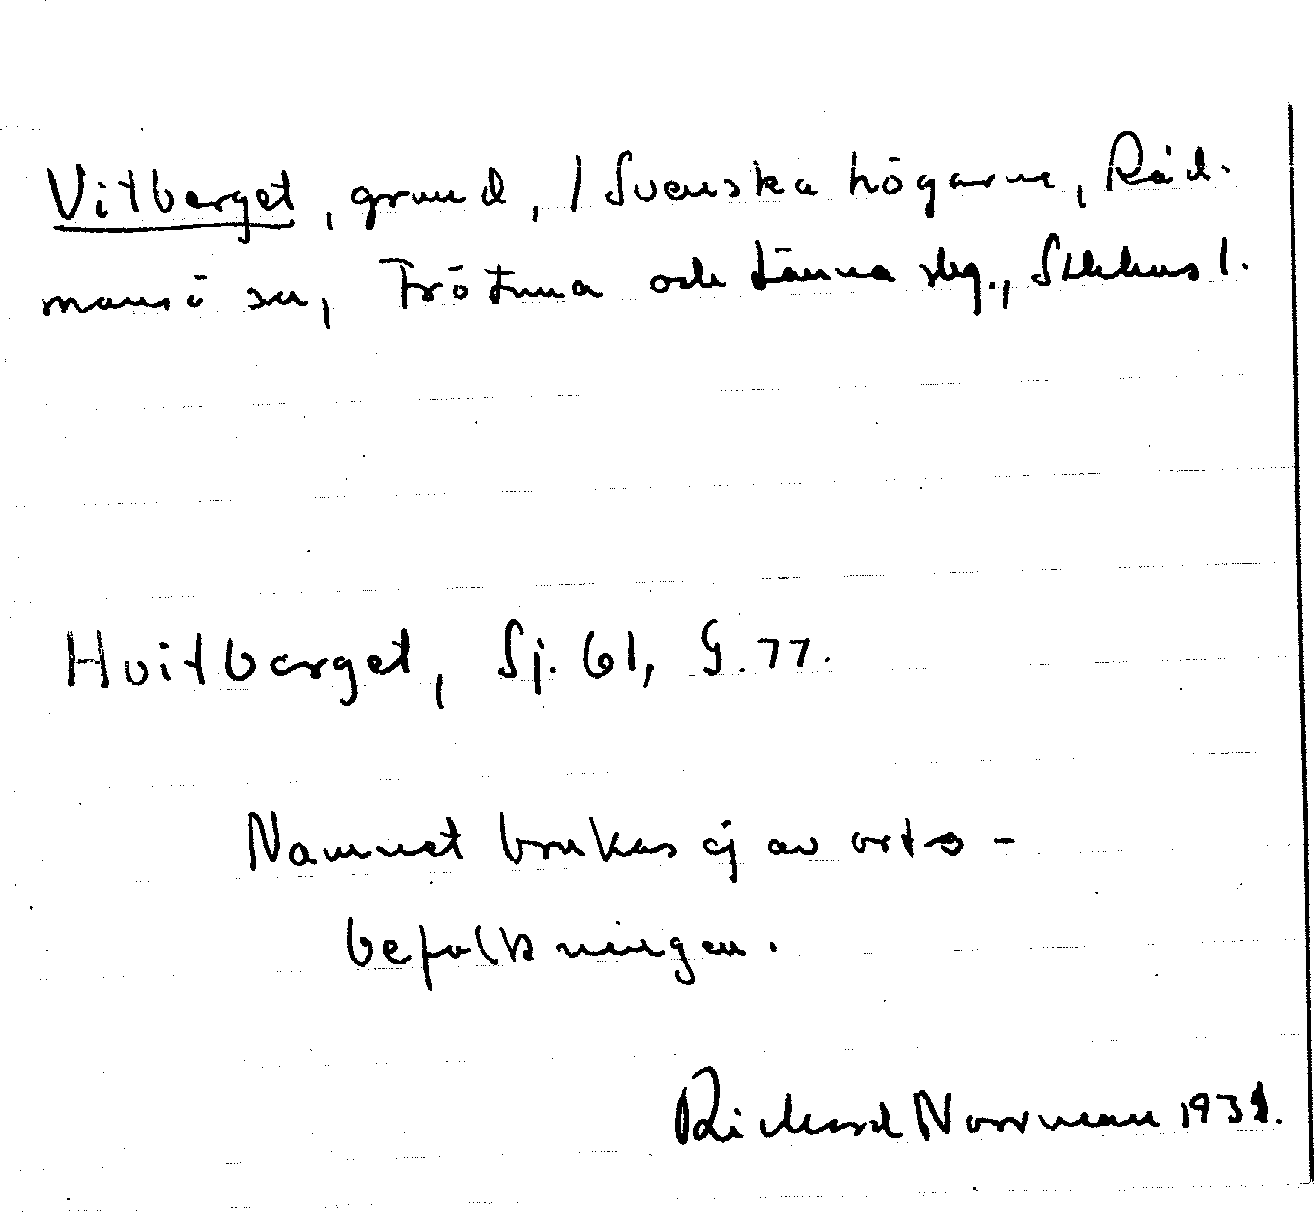 Vitberget, grund, / Svenska högarne, Råd-
mansö sn, Frötuna och Länna skg., Sthlms l.
Hvitberget, Sj. 61, G. 77.
Namnet brukas ej av orts-
befolkningen.
Rickard Norrman 1931.